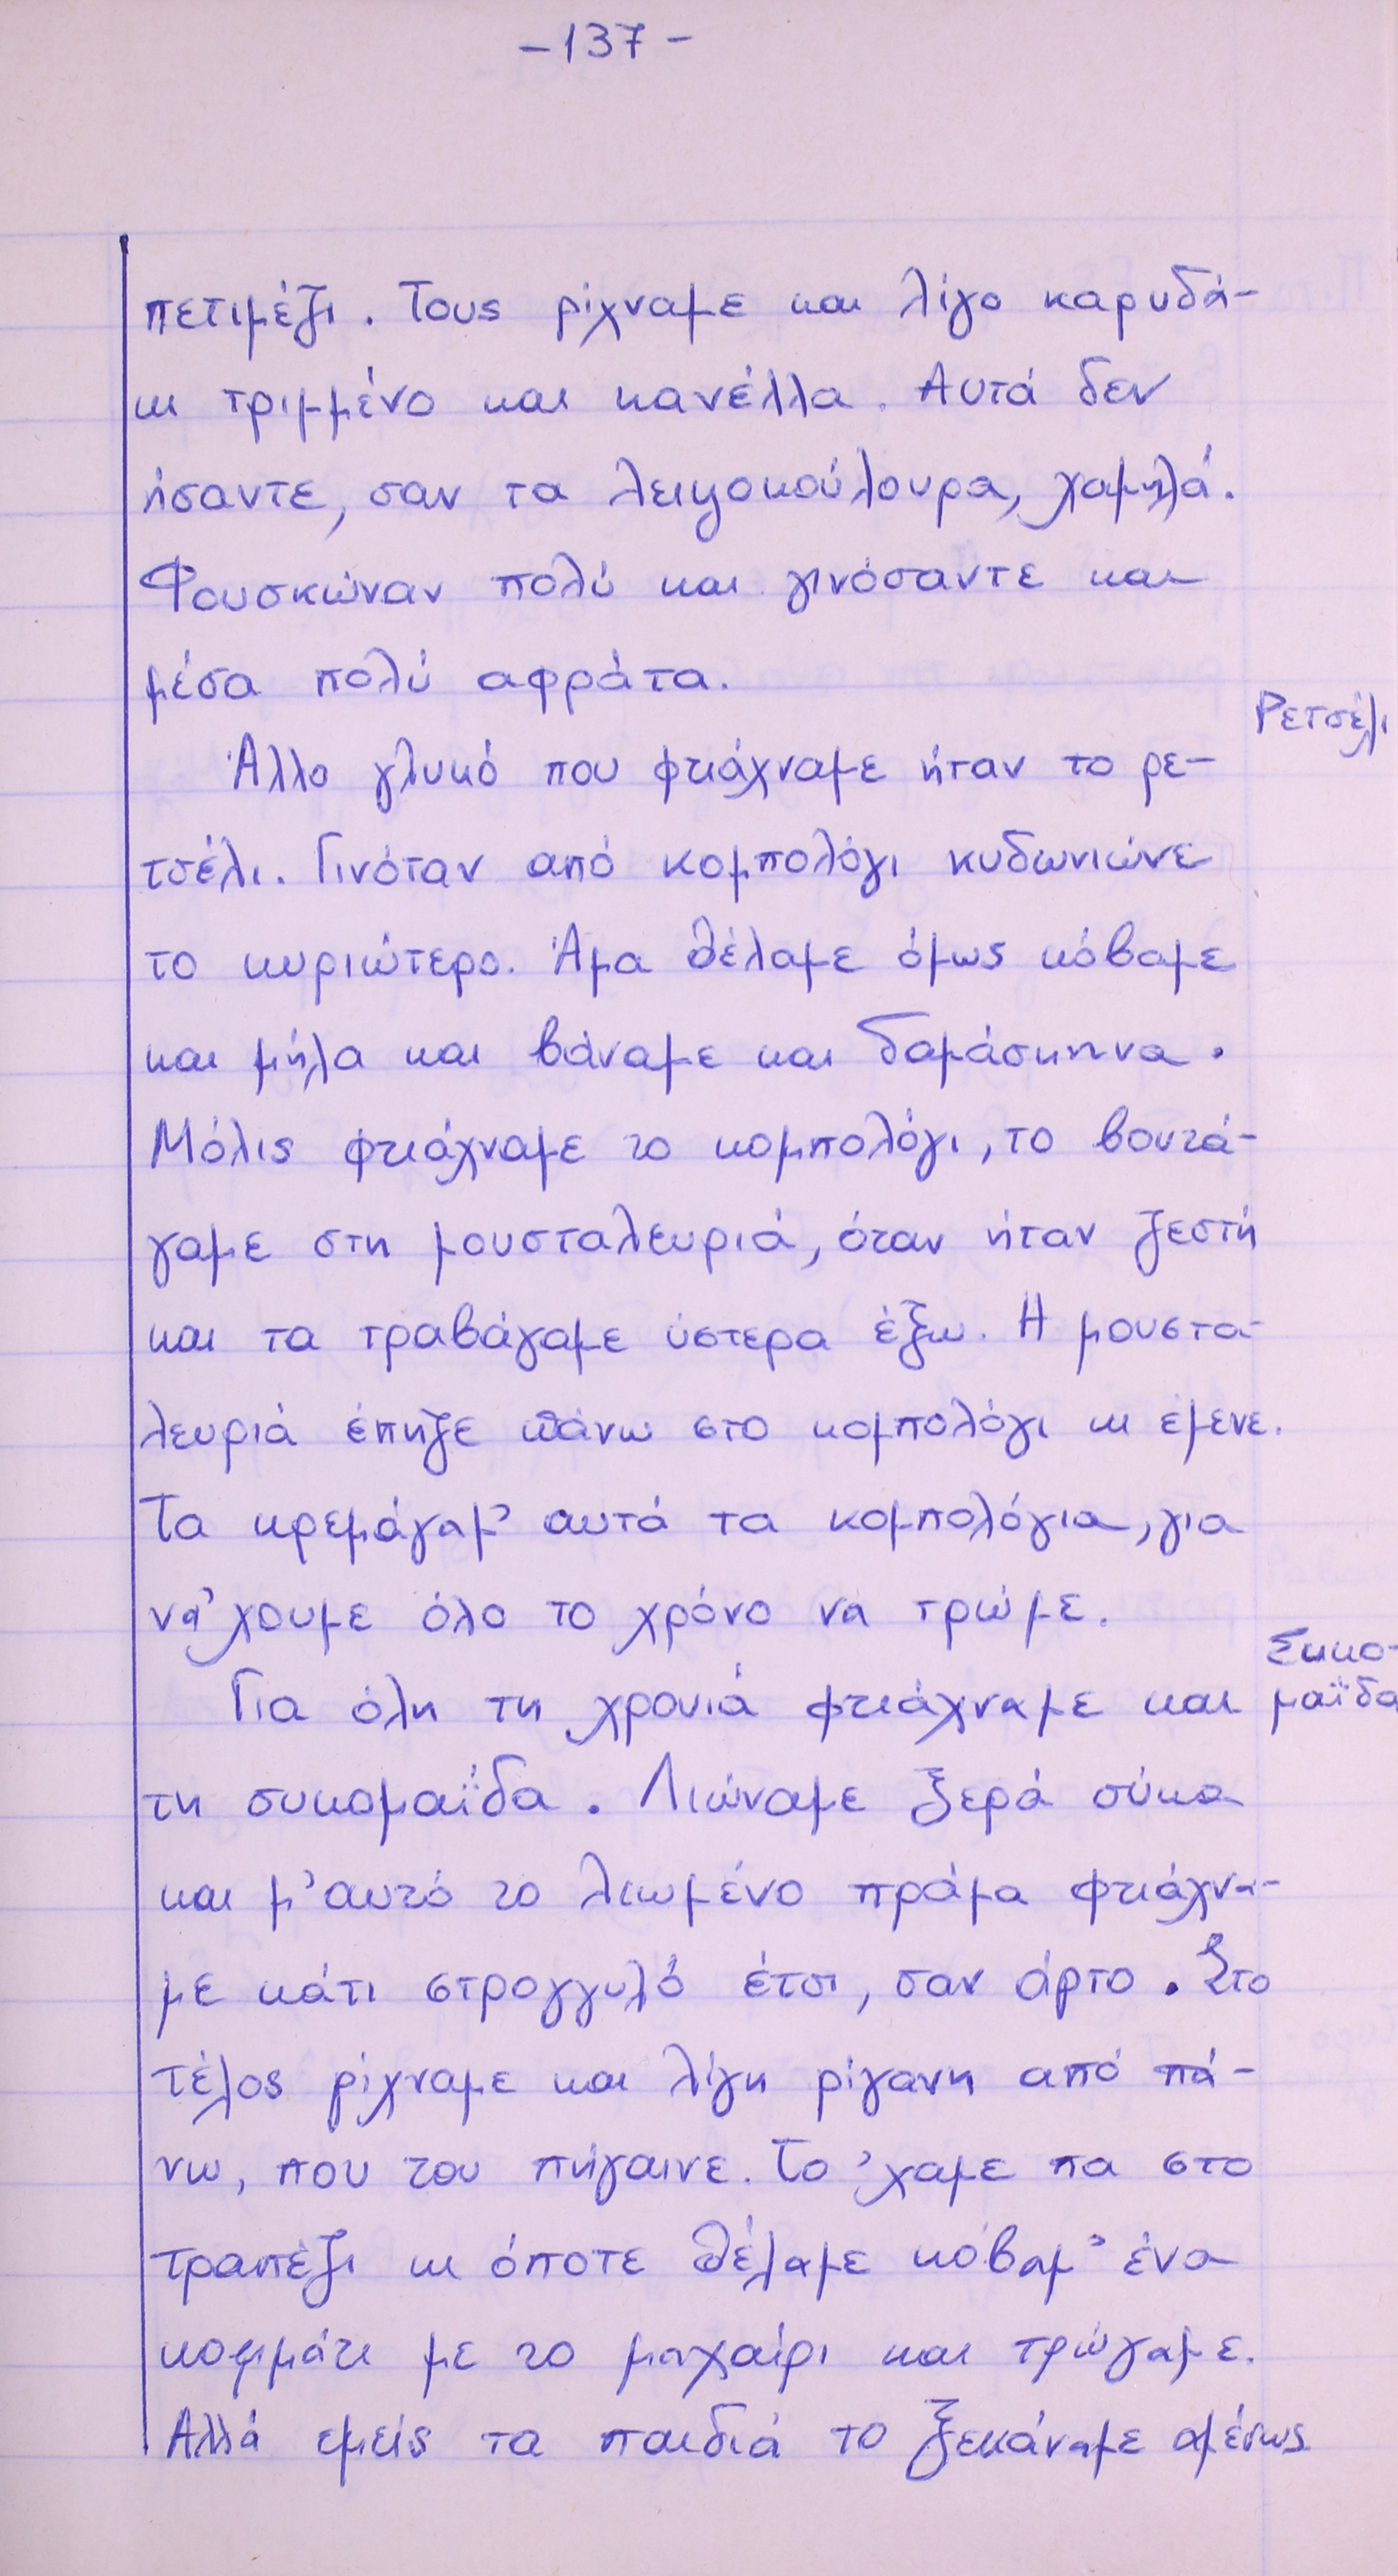 -137-
πετιμέζι. Τους ρίχναμε και λίγο καρυδά-
κι τριμμένο και κανέλλα. Αυτά δεν
ήσαντε, σαν τα λειψοκούλουρα, χαμηλά.
Φουσκώναν πολύ και γινόσαντε και
μέσα πολύ αφράτα.
Ρετσέλι
Άλλο γλυκό που φτιάχναμε ήταν το ρε-
τσέλι. Γινόταν από κομπολόγι κυδωνιώνε
το κυριώτερο. Άμα θέλαμε όμως κόβαμε
και μήλα και βάναμε και δαμάσκηνα.
Μόλις φτιάχναμε το κομπολόγι, το βουτά-
γαμε στη μουσταλευριά, όταν ήταν ζεστή
και τα τραβάγαμε ύστερα έξω. Η μουστα-
λευριά έπηζε πάνω στο κομπολόγι κι έμενε.
Τα κρεμάγαμ' αυτά τα κομπολόγια, για
να'χουμε όλο το χρόνο να τρώμε.
Συκο-
μαΐδα
Για όλη τη χρονιά φτιάχναμε και
τη συκομαΐδα. Λιώναμε ξερά σύκα
και μ'αυτό το λιωμένο πράμα φτιάχνα-
με κάτι στρογγυλό έτσι, σαν άρτο. Στο
τέλος ρίχναμε και λίγη ρίγανη από πά-
νω, που του πήγαινε. Το 'χαμε πα στο
τραπέζι κι όποτε θέλαμε κόβαμ' ένα
κομμάτι με το μαχαίρι και τρώγαμε.
Αλλά εμείς τα παιδιά το ξεκάναμε αμέσως